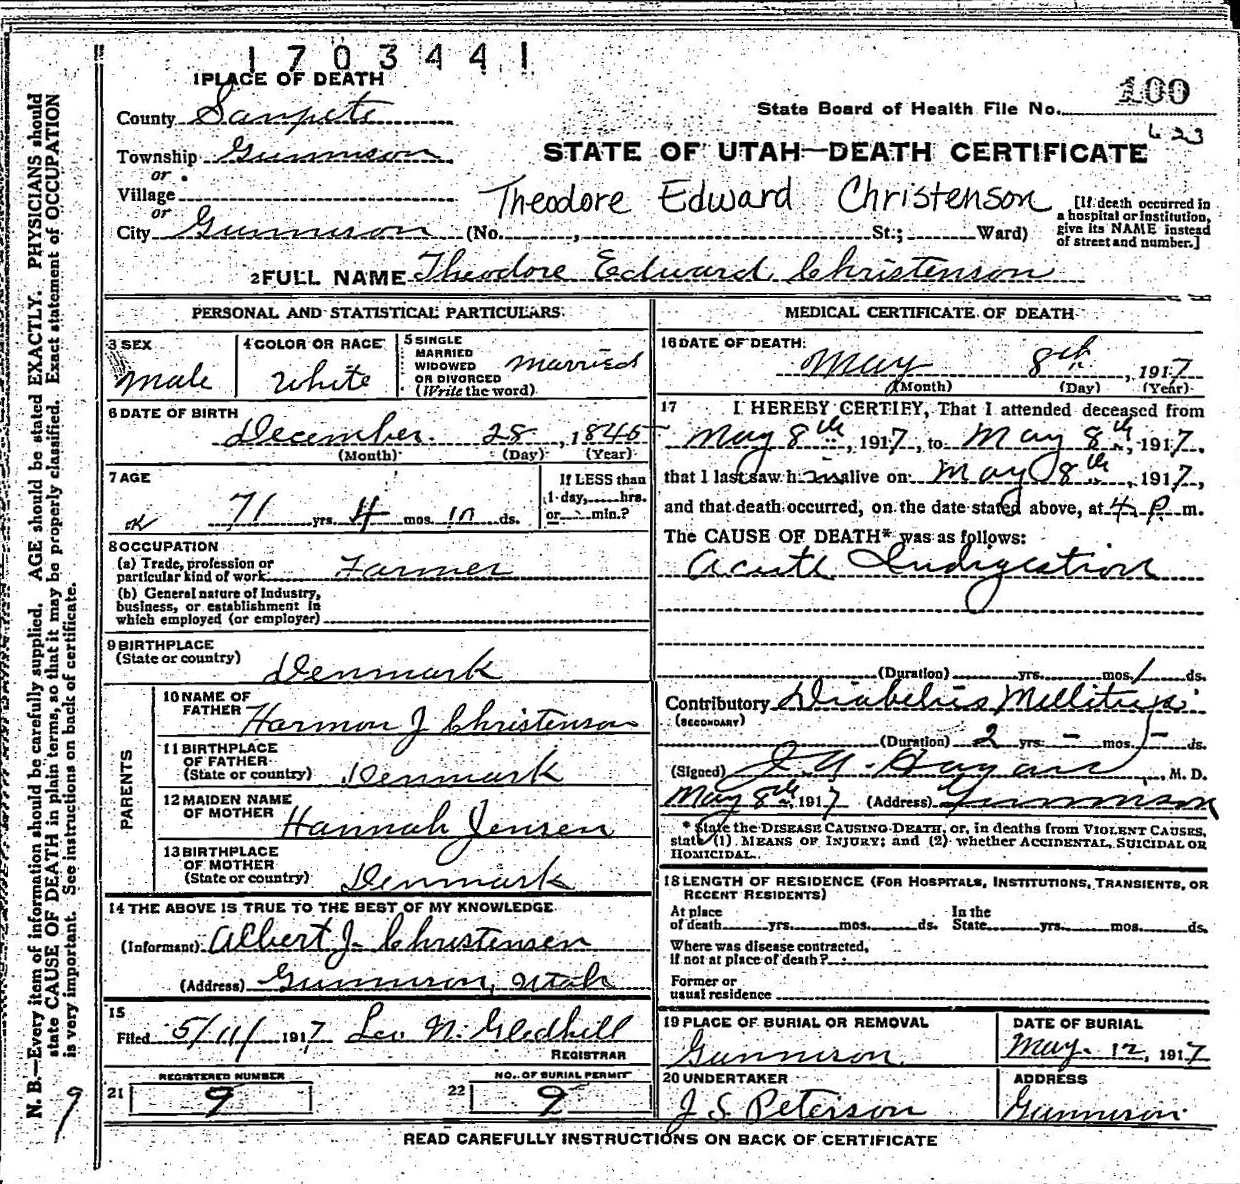 1703441
1 PLACE OF DEATH
County Sanpete
State Board of Health File No. 100
623
Township Gunnison
or
STATE OF UTAH—DEATH CERTIFICATE
Village
or
Theodore Edward Christenson
City Gunnison (No. , St.; Ward)
[If death occurred in
a hospital or institution,
give its NAME instead
of street and number.]
2 FULL NAME Theodore Edward Christenson
PERSONAL AND STATISTICAL PARTICULARS
3 SEX
Male
4 COLOR OR RACE
White
5 SINGLE
MARRIED
WIDOWED
OR DIVORCED
(Write the word)
Married
6 DATE OF BIRTH
December 28, 1845
(Month) (Day) (Year)
7 AGE
OK 71 yrs. 4 mos. 10 ds.
If LESS than
1 day, hrs.
or min.?
8 OCCUPATION
(a) Trade, profession or
particular kind of work Farmer
(b) General nature of Industry,
business, or establishment in
which employed (or employer)
9 BIRTHPLACE
(State or country) Denmark
PARENTS
10 NAME OF
FATHER Harmon J Christenson
11 BIRTHPLACE
OF FATHER
(State or country) Denmark
12 MAIDEN NAME
OF MOTHER Hannah Jensen
13 BIRTHPLACE
OF MOTHER
(State or country) Denmark
14 THE ABOVE IS TRUE TO THE BEST OF MY KNOWLEDGE
(Informant) Albert J. Christensen
(Address) Gunnison, Utah
15
Filed 5/11/ 1917 Leo N. Gledhill
REGISTRAR
21 REGISTERED NUMBER
9
22 NO. OF BURIAL PERMIT
9
MEDICAL CERTIFICATE OF DEATH
16 DATE OF DEATH:
May 8th, 1917
(Month) (Day) (Year)
17 I HEREBY CERTIFY, That I attended deceased from
May 8th, 1917, to May 8th, 1917,
that I last saw him alive on May 8th, 1917,
and that death occurred, on the date stated above, at 4 P m.
The CAUSE OF DEATH* was as follows:
Acute Indigestion
(Duration) yrs. mos. 1 ds.
Contributory Diabetus Mellitus
(SECONDARY)
(Duration) 2 yrs. - mos. - ds.
(Signed) M. D.
May 8th, 1917 (Address) Gunnison
* State the DISEASE CAUSING DEATH, or, in deaths from VIOLENT CAUSES,
state (1) MEANS OF INJURY; and (2) whether ACCIDENTAL, SUICIDAL OR
HOMICIDAL.
18 LENGTH OF RESIDENCE (FOR HOSPITALS, INSTITUTIONS, TRANSIENTS, OR
RECENT RESIDENTS)
At place
of death yrs. mos. ds.
In the
State yrs. mos. ds.
Where was disease contracted,
if not at place of death?
Former or
usual residence
19 PLACE OF BURIAL OR REMOVAL
Gunnison
DATE OF BURIAL
May 12, 1917
20 UNDERTAKER
J S Peterson
ADDRESS
Gunnison
READ CAREFULLY INSTRUCTIONS ON BACK OF CERTIFICATE
N. B.—Every item of information should be carefully supplied. AGE should be stated EXACTLY. PHYSICIANS should
state CAUSE OF DEATH in plain terms, so that it may be properly classified. Exact statement of OCCUPATION
is very important. See instructions on back of certificate.
9